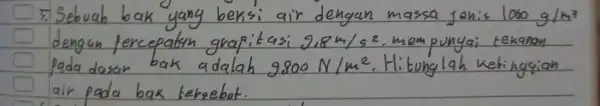 5. Sebuah bak yang berisi air dengan massa jenis 1000 g/m³
dengan percepatan grapitasi 9,8 m/s², mempunyai tekanan
pada dasar bak adalah 9800 N/m². Hitunglah ketinggian
air pada bak tersebut.